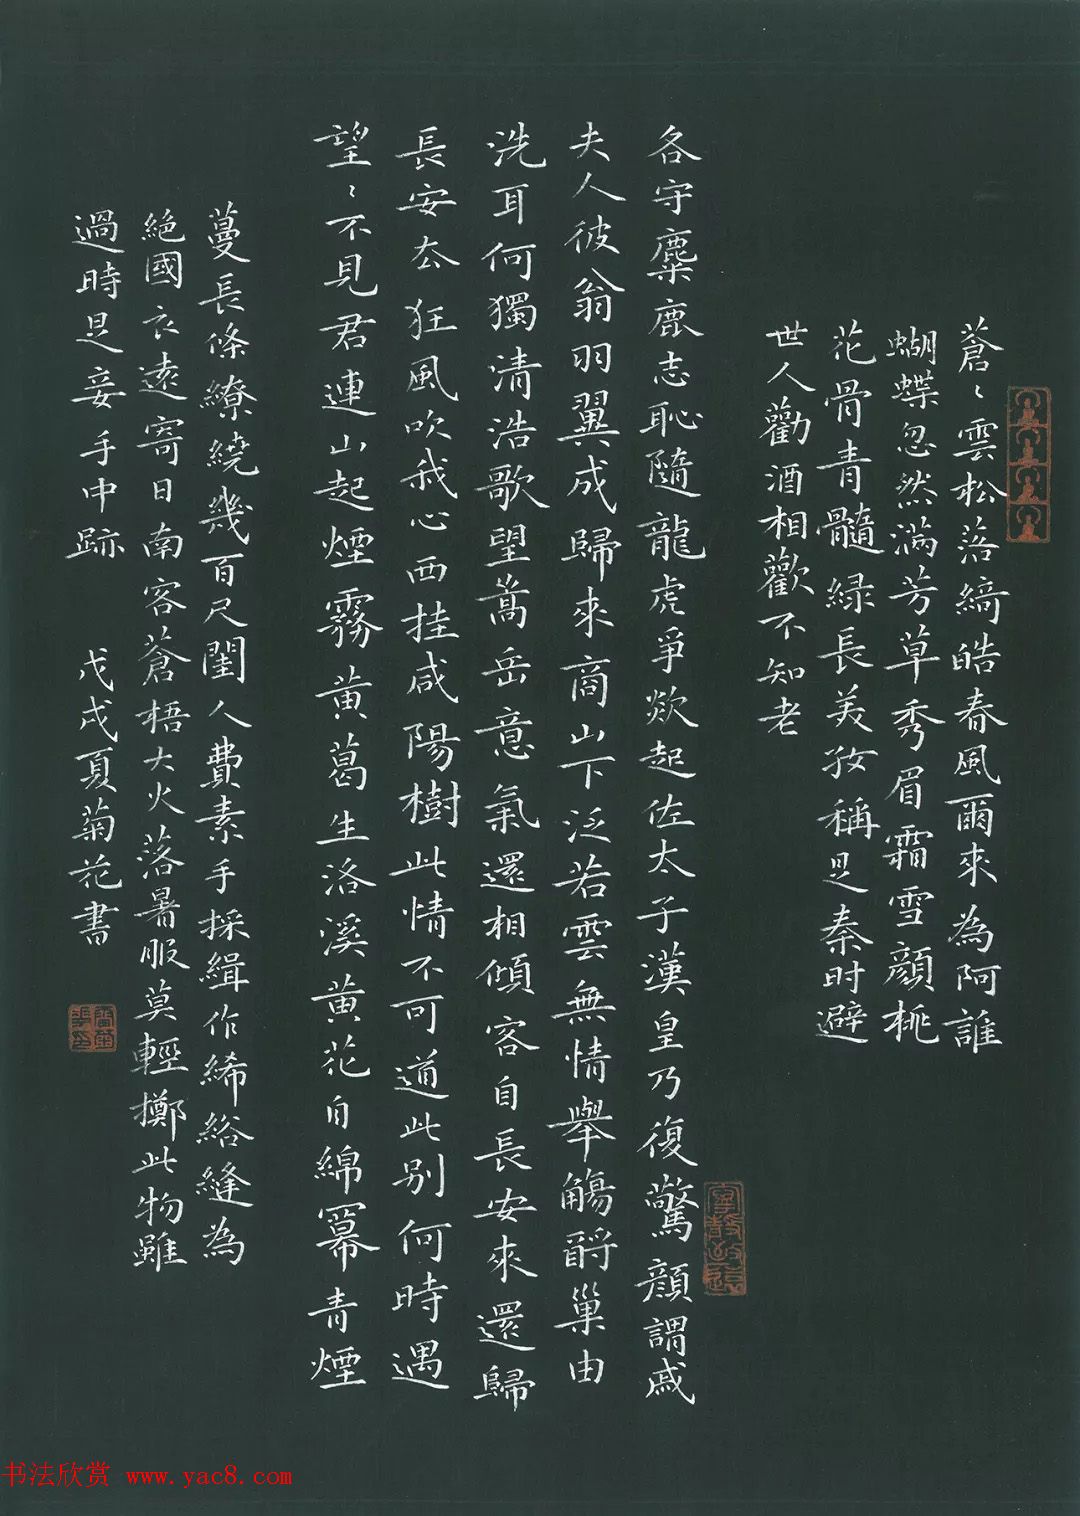 蒼〻雲松落綺皓春風爾來為阿誰
蝴蝶忽然滿芳草秀眉霜雪顏桃
花骨青髓綠長美好稱是秦时避
世人勸酒相歡不知老
各守麋鹿志恥隨龍虎爭欻起佐太子漢皇乃復驚顏謂戚
夫人彼翁羽翼成歸來商山下泛若雲無情舉觴酹巢由
洗耳何獨清浩歌望嵩岳意氣還相傾客自長安來還歸
長安去狂風吹我心西挂咸陽樹此情不可道此別何時遇
望〻不見君連山起煙霧黄葛生洛溪黄花自綿冪青煙
蔓長條繚繞幾百尺閨人費素手採緝作絺綌縫為
絕國衣遠寄日南客蒼梧大火落暑服莫輕擲此物雖
過時是妾手中跡 戊戌夏菊花書
书法欣赏 www.yac8.com